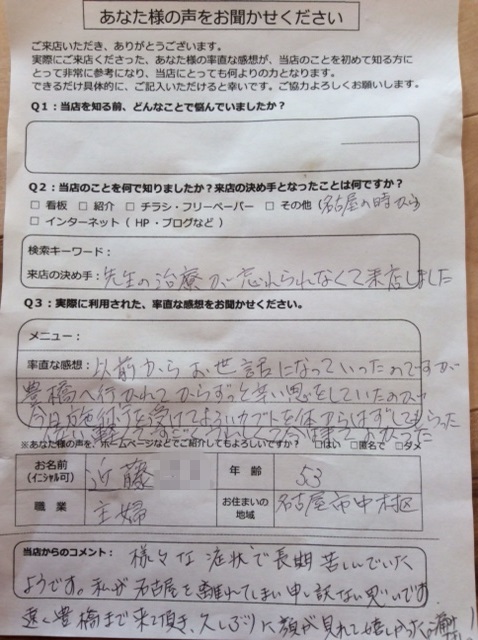 あなた様の声をお聞かせください
ご来店いただき、ありがとうございます。
実際にご来店くださった、あなた様の率直な感想が、当店のことを初めて知る方に
とって非常に参考になり、当店にとっても何よりの力となります。
できるだけ具体的に、ご記入いただけると幸いです。ご協力よろしくお願いします。
Q1：当店を知る前、どんなことで悩んでいましたか？
Q2：当店のことを何で知りましたか？来店の決め手となったことは何ですか？
□ 看板 □ 紹介 □ チラシ・フリーペーパー □ その他（名古屋の時から）
□ インターネット（ HP・ブログなど ）
検索キーワード：
来店の決め手：先生の治療が忘れられなくて来店しました
Q3：実際に利用された、率直な感想をお聞かせください。
メニュー：
率直な感想：以前からお世話になっていったのですが
豊橋へ行かれてからずっと辛い思をしていたので
今日施術を受けてよろいカブトを体からはずしてもらった
※あなた様の声を、ホームページなどでご紹介してもよろしいですか？ □はい □匿名で □ダメ
お名前
（イニシャル可） 近藤 年 齢 53
職 業 主婦 お住まいの
地域 名古屋市中村区
当店からのコメント： 様々な症状で長期苦しんでいた
ようです。私が名古屋を離れてしまい申し訳ない思いです
遠く豊橋まで来て頂き、久しぶりに顔が見れて嬉しかった